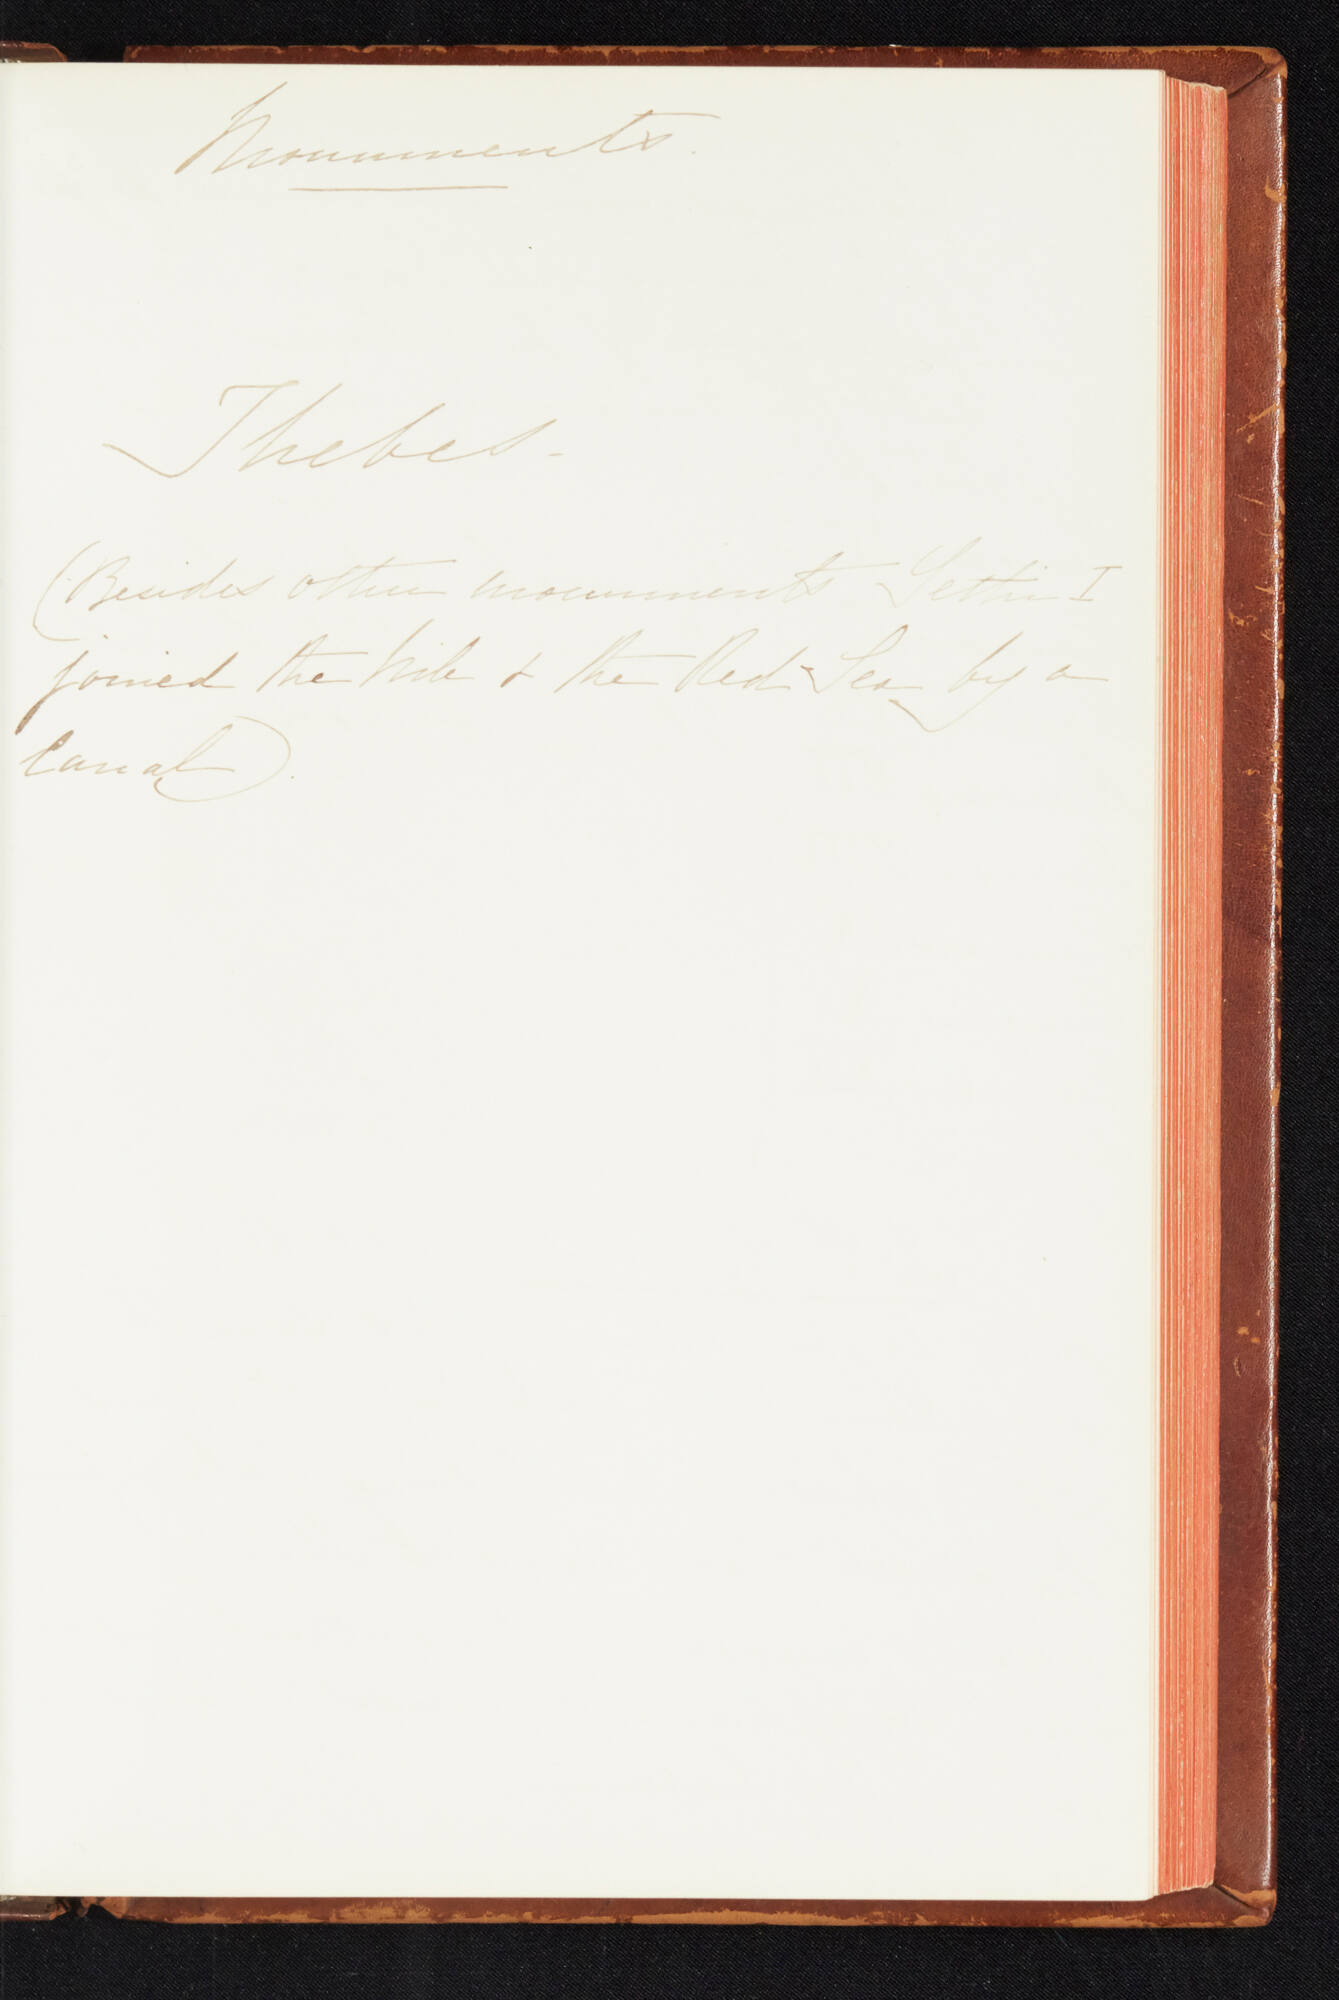 Monuments.
Thebes -
(Besides other monuments Sethi I
joined the Nile & the Red Sea by a
Canal).